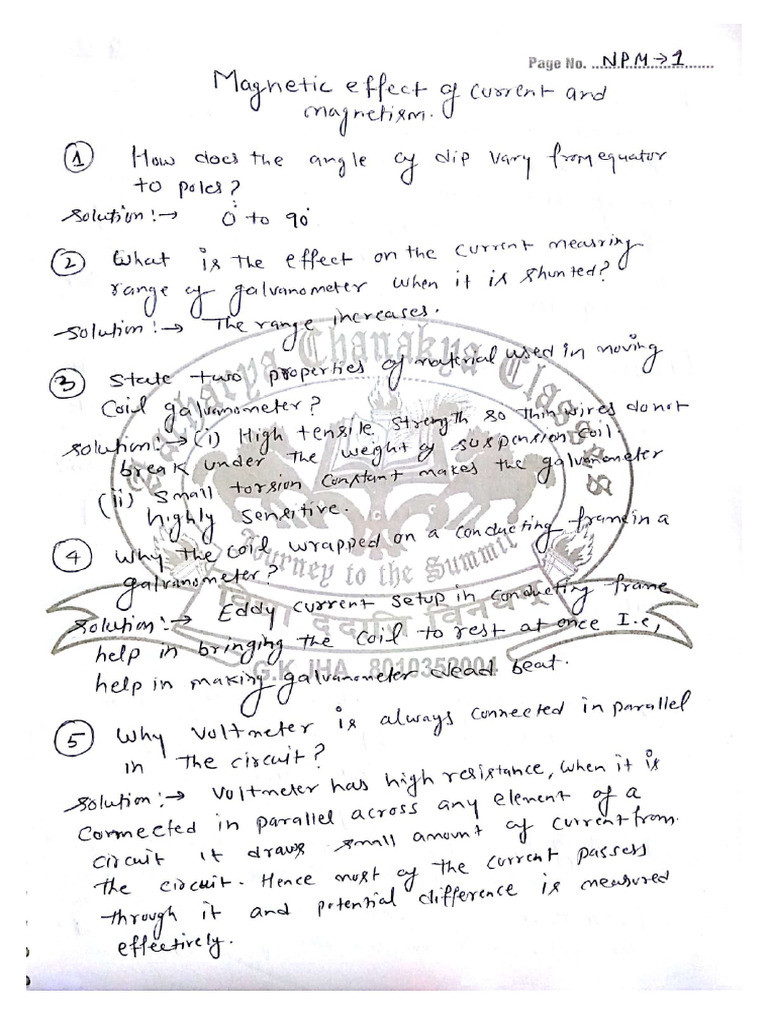 Page No. ...NPM→1......
Magnetic effect of current and
magnetism.
① How does the angle of dip vary from equator
to poles?
Solution:→ 0° to 90°
② What is the effect on the current measring
range of galvanometer when it is shunted?
Solution:→ The range increases.
③ State two properties of material used in moving
Coil galvanometer?
Solution:→ (i) High tensile strength so thin wires donot
break under the weight of suspension coil.
(ii) Small torsion constant makes the galvanometer
highly sensitive.
④ Why the coil wrapped on a conducting frame in a
galvanometer?
Solution:→ Eddy current setup in conducting frame
help in bringing the coil to rest at once I.e,
help in making galvanometer dead beat.
⑤ Why voltmeter is always connected in parallel
in the circuit?
Solution:→ Voltmeter has high resistance, when it is
connected in parallel across any element of a
circuit it draws small amount of current from
the circuit. Hence most of the current passess
through it and potential difference is measured
effectively.
Acharya Chanakya Classes
Journey to the Summit
विद्या ददाति विनयम्
G.K JHA 8010352001